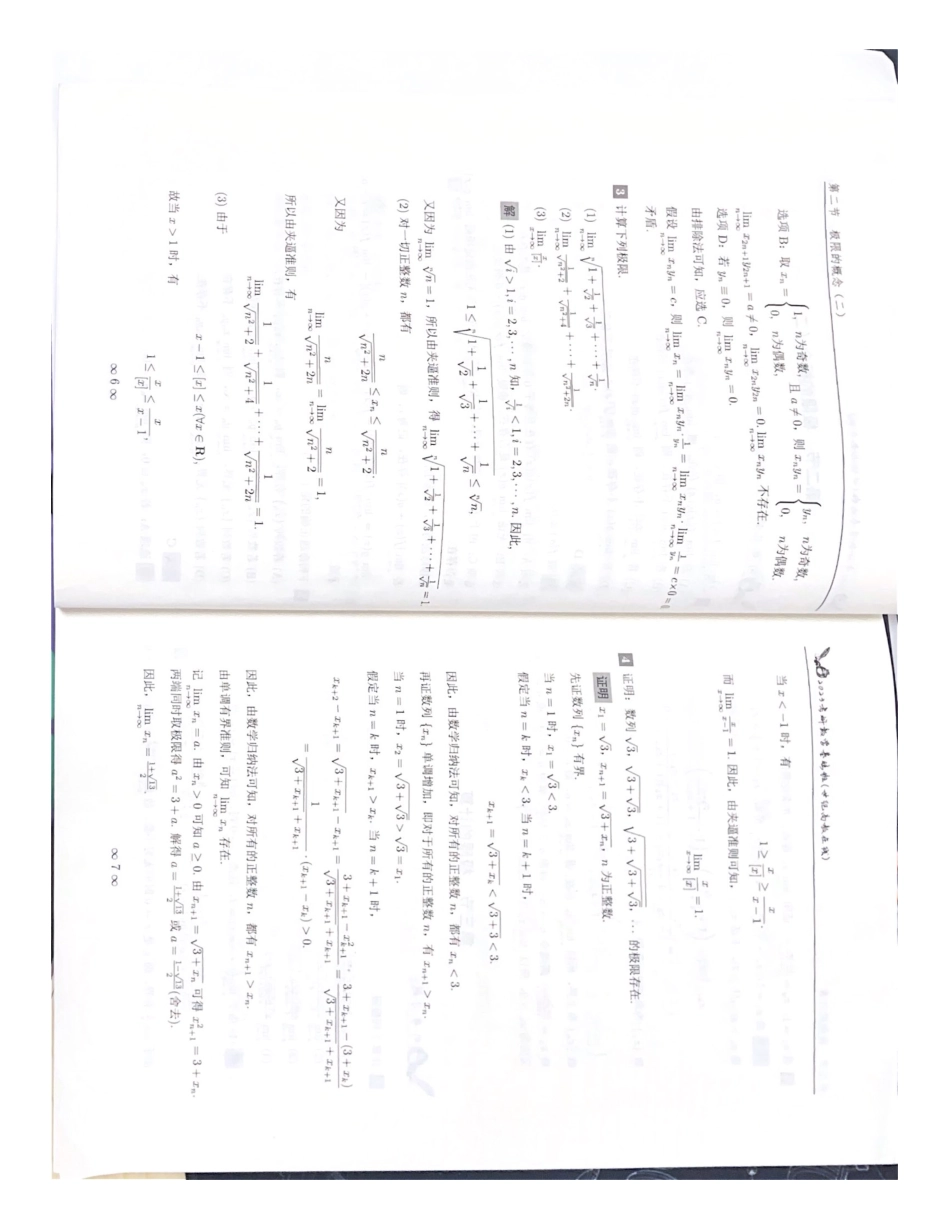 第二节 极限的概念(二)
选项 B:取 xₙ = { 1, n为奇数, 0, n为偶数, 且 a ≠ 0, 则 xₙyₙ = { yₙ, n为奇数, 0, n为偶数.
lim_{n→∞} x₂ₙ₊₁y₂ₙ₊₁ = a ≠ 0, lim_{n→∞} x₂ₙy₂ₙ = 0, lim_{n→∞} xₙyₙ 不存在.
选项 D:若 yₙ ≡ 0, 则 lim_{n→∞} xₙyₙ = 0.
由排除法可知, 应选 C.
假设 lim_{n→∞} xₙyₙ = c, 则 lim_{n→∞} xₙ = lim_{n→∞} xₙyₙ·1/yₙ = lim_{n→∞} xₙyₙ · lim_{n→∞} 1/yₙ = c×0 = 0
矛盾.
3 计算下列极限.
(1) lim_{n→∞} ⁿ√(1 + 1/√2 + 1/√3 + ⋯ + 1/√n).
(2) lim_{n→∞} 1/√(n²+2) + 1/√(n²+4) + ⋯ + 1/√(n²+2n).
(3) lim_{x→∞} x/[x].
解 (1) 由 √i > 1, i = 2, 3, ⋯, n 知, 1/√i < 1, i = 2, 3, ⋯, n. 因此,
1 ≤ ⁿ√(1 + 1/√2 + 1/√3 + ⋯ + 1/√n) ≤ ⁿ√n,
又因为 lim_{n→∞} ⁿ√n = 1, 所以由夹逼准则, 得 lim_{n→∞} ⁿ√(1 + 1/√2 + 1/√3 + ⋯ + 1/√n) = 1.
(2) 对一切正整数 n, 都有
n/√(n²+2n) ≤ xₙ ≤ n/√(n²+2).
又因为
lim_{n→∞} n/√(n²+2n) = lim_{n→∞} n/√(n²+2) = 1,
所以由夹逼准则, 有
lim_{n→∞} 1/√(n²+2) + 1/√(n²+4) + ⋯ + 1/√(n²+2n) = 1.
(3) 由于
x − 1 ≤ [x] ≤ x(∀x ∈ R),
故当 x > 1 时, 有
1 ≤ x/[x] ≤ x/(x−1),
∞ 6 ∞
当 x < −1 时, 有
1 ≥ x/[x] ≥ x/(x−1).
而 lim_{x→∞} x/(x−1) = 1. 因此, 由夹逼准则可知,
lim_{x→∞} x/[x] = 1.
4 证明: 数列 √3, √(3+√3), √(3+√(3+√3)), ⋯ 的极限存在.
证明 x₁ = √3, xₙ₊₁ = √(3+xₙ), n 为正整数.
先证数列 {xₙ} 有界.
当 n = 1 时, x₁ = √3 < 3.
假定当 n = k 时, xₖ < 3. 当 n = k + 1 时,
xₖ₊₁ = √(3+xₖ) < √(3+3) < 3.
因此, 由数学归纳法可知, 对所有的正整数 n, 都有 xₙ < 3.
再证数列 {xₙ} 单调增加, 即对于所有的正整数 n, 有 xₙ₊₁ > xₙ.
当 n = 1 时, x₂ = √(3+√3) > √3 = x₁.
假定当 n = k 时, xₖ₊₁ > xₖ. 当 n = k + 1 时,
xₖ₊₂ − xₖ₊₁ = √(3+xₖ₊₁) − xₖ₊₁ = (3+xₖ₊₁−x²ₖ₊₁)/(√(3+xₖ₊₁)+xₖ₊₁) = (3+xₖ₊₁−(3+xₖ))/(√(3+xₖ₊₁)+xₖ₊₁)
= 1/(√(3+xₖ₊₁)+xₖ₊₁) · (xₖ₊₁ − xₖ) > 0.
因此, 由数学归纳法可知, 对所有的正整数 n, 都有 xₙ₊₁ > xₙ.
由单调有界准则, 可知 lim_{n→∞} xₙ 存在.
记 lim_{n→∞} xₙ = a. 由 xₙ > 0 可知 a ≥ 0. 由 xₙ₊₁ = √(3+xₙ) 可得 x²ₙ₊₁ = 3 + xₙ.
两端同时取极限得 a² = 3 + a. 解得 a = (1+√13)/2 或 a = (1−√13)/2 (舍去).
因此, lim_{n→∞} xₙ = (1+√13)/2.
∞ 7 ∞